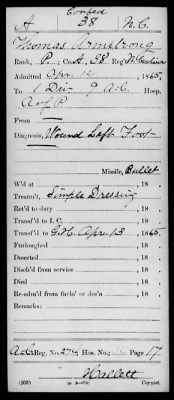 Confed
A 38 N.C.
Thomas Armstrong
Rank, P.; Co. A, 38 Reg't N. Carolina
Admitted Apr. 12, 1865.
To 1 Div 9 A.C. Hosp.
A of P.
From
Diagnosis, Wound Left Foot
Missile, Bullet
W'd at , 18 .
Treatm't, Simple Dressing
Ret'd to duty , 18 .
Transf'd to I. C. , 18 .
Transf'd to G.H. Apr. 13, 1865.
Furloughed , 18 .
Deserted , 18 .
Disch'd from service , 18 .
Died , 18 .
Re-adm'd from furlo' or des'n , 18 .
Remarks:
Reg. No. Hos. No. Page 17.
Copyist.